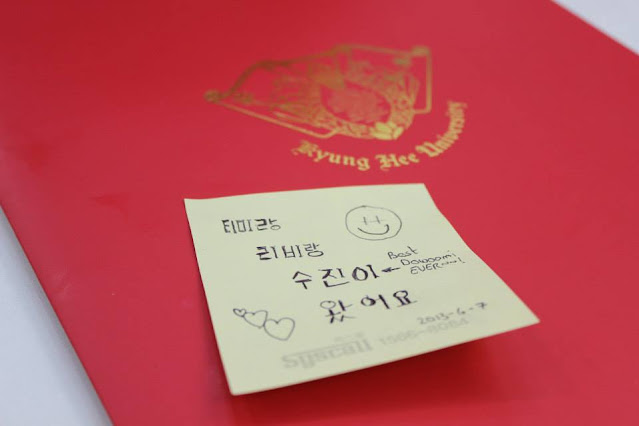 Kyung Hee University
티미랑
리비랑
수진이
Best
Dowoomi
EVER......!
왔어요
2013-6-7
syscall 1566-8084